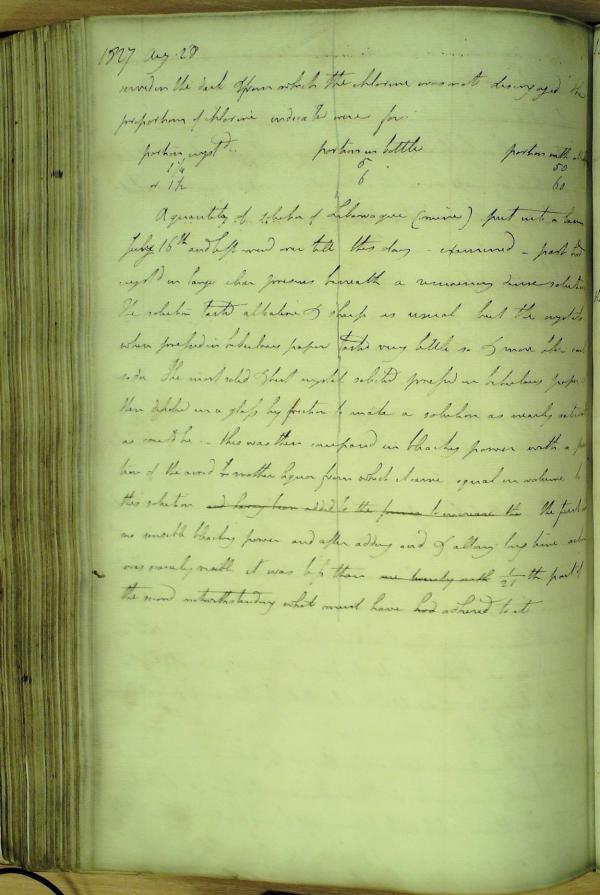 1827 Aug. 28
served in the dark & from which the chlorine was not disengaged the
proportions of chlorine indicate were for
portion crystd portion in bottle portion with
1 1/4 5 50
or 1 1/2 6 60
A quantity of solution of Labarraque (mine) put into a
July 16th and left over till this day - examined - part had
crystd in large clear beneath a remaining dense solution
the solution tasted alkaline & sharp as usual but the crystals
when pressed in bibulous paper tasted very little so & more like
soda The most solid & best crystals selected pressed in bibulous paper
then in a glass by friction to make a solution as nearly
as could be - this was then compared in bleaching power with a
tion of the mother liquor from which it came equal in volume to
this solution and having been added to the to increase the the first
no sensible bleaching power and after adding acid & allowing long time action
was scarcely visible it was less than 1/21 th part of
the second notwithstanding what must have had adhered to it